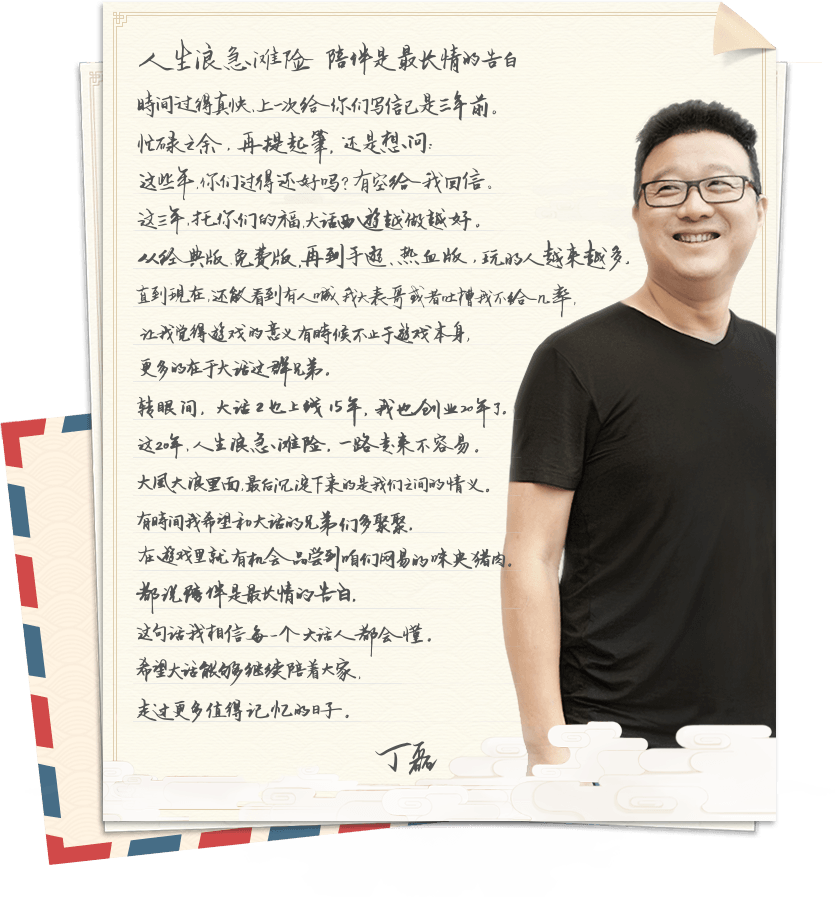 人生浪急滩险 陪伴是最长情的告白
時间过得真快,上一次给你们写信已是三年前。
忙碌之余,再提起筆,还是想问:
这些年,你们过得还好吗?有空给我回信。
这三年,托你们的福,大话西遊越做越好。
从经典版,免費版,再到手遊,热血版,玩的人越来越多,
直到现在,还能看到有人喊我大表哥或者吐槽我不给几率,
让我觉得遊戏的意义有時候不止于遊戏本身,
更多的在于大话这群兄弟。
转眼间,大话2也上线15年,我也创业20年了。
这20年,人生浪急滩险,一路走来不容易。
大風大浪里面,最后沉淀下来的是我们之间的情义。
有時间我希望和大话的兄弟们多聚聚,
在遊戏里就有机会品尝到咱们网易的味央猪肉。
都说陪伴是最长情的告白,
这句话我相信每一个大话人都会懂。
希望大话能够继续陪着大家,
走过更多值得记忆的日子。
丁磊